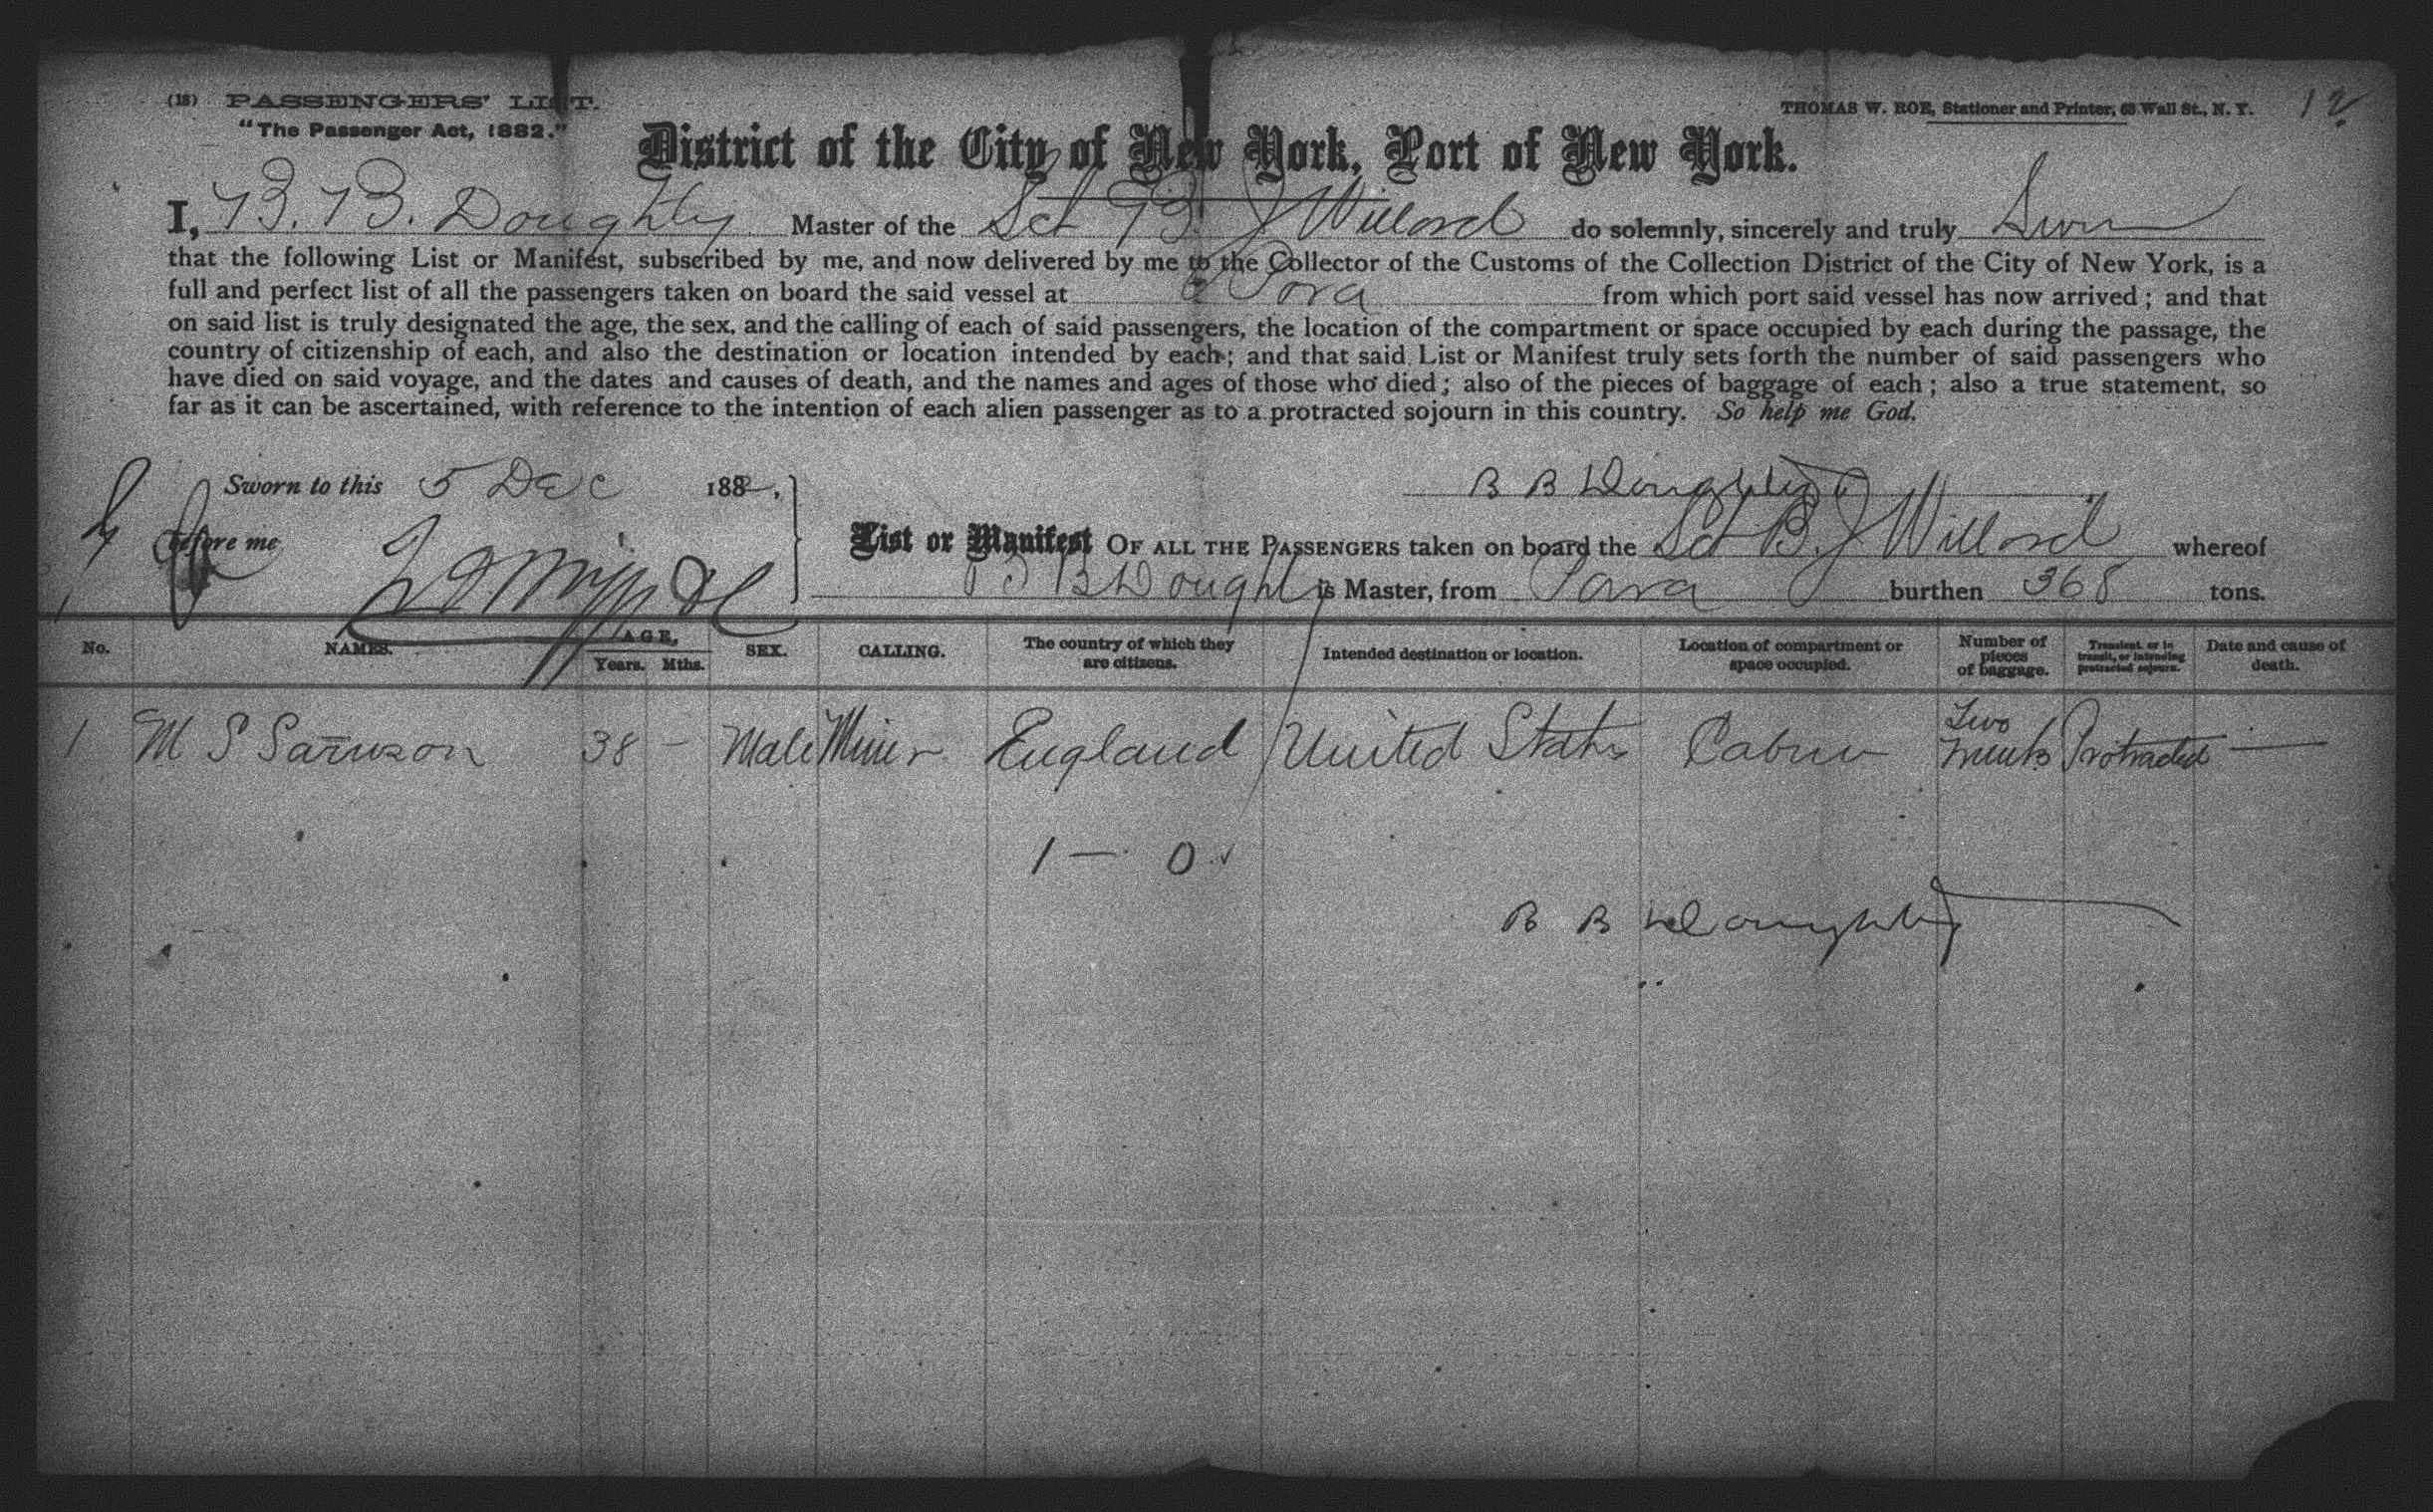 (18) PASSENGERS' LIST.
THOMAS W. ROE, Stationer and Printer, 63 Wall St., N. Y.
12
"The Passenger Act, 1882."
District of the City of New York, Port of New York.
I, B. B. Doughty Master of the Sch B. J Willard do solemnly, sincerely and truly Swear
that the following List or Manifest, subscribed by me, and now delivered by me to the Collector of the Customs of the Collection District of the City of New York, is a
full and perfect list of all the passengers taken on board the said vessel at Para from which port said vessel has now arrived; and that
on said list is truly designated the age, the sex, and the calling of each of said passengers, the location of the compartment or space occupied by each during the passage, the
country of citizenship of each, and also the destination or location intended by each; and that said List or Manifest truly sets forth the number of said passengers who
have died on said voyage, and the dates and causes of death, and the names and ages of those who died; also of the pieces of baggage of each; also a true statement, so
far as it can be ascertained, with reference to the intention of each alien passenger as to a protracted sojourn in this country. So help me God.
Sworn to this 5 Dec 1882,
B B Doughty
before me
List or Manifest OF ALL THE PASSENGERS taken on board the Sch B. J Willard whereof
B B Doughty is Master, from Para burthen 368 tons.
No. NAMES. AGE, Years. Mths. SEX. CALLING. The country of which they are citizens. Intended destination or location. Location of compartment or space occupied. Number of pieces of baggage. Transient, or in transit, or intending protracted sojourn. Date and cause of death.
1 M S 38 — Male Miner England United States Cabin Two trunks Protracted —
1 — 0
B B Doughty